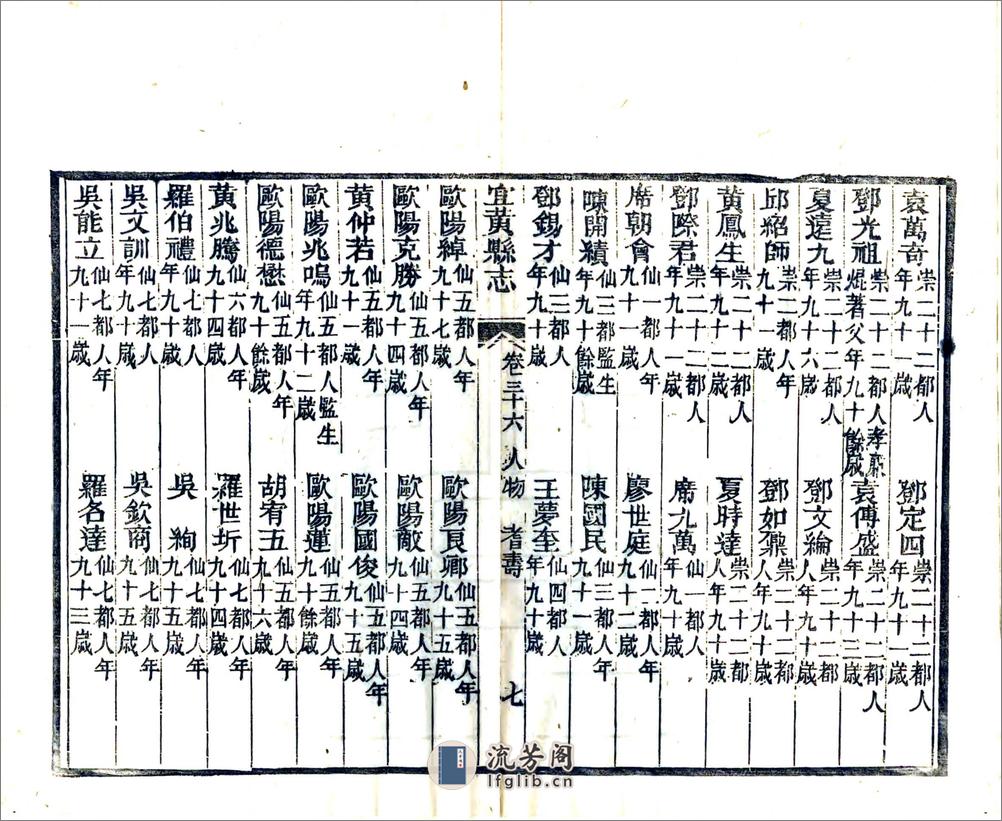 袁萬奇崇二十二都人年九十一歲 鄧定四崇二十二都人年九十一歲
鄧光祖崇二十二都人孝廉焜著父年九十餘歲 袁傅盛崇二十二都人年九十三歲
夏遠九崇二十二都人年九十六歲 鄧文綸崇二十二都人年九十歲
邱紹師崇二都人年九十一歲 鄧如鼎崇二十二都人年九十歲
黃鳳生崇二十二都人年九十二歲 夏時達崇二十二都人年九十歲
鄧際君崇二十二都人年九十一歲 席九萬仙一都人年九十歲
席朝會仙一都人年九十一歲 廖世庭仙二都人年九十二歲
陳開績仙三都監生年九十餘歲 陳國民仙三都人年九十一歲
鄧錫才仙三都人年九十歲 王夢奎仙四都人年九十歲
宜黃縣志 卷三十六 人物 耆壽 七
歐陽綽仙五都人年九十七歲 歐陽艮卿仙五都人年九十五歲
歐陽克勝仙五都人年九十四歲 歐陽敵仙五都人年九十四歲
黃仲若仙五都人年九十一歲 歐陽國俊仙五都人年九十五歲
歐陽兆鳴仙五都人監生年九十二歲 歐陽蓮仙五都人年九十餘歲
歐陽德懋仙五都人年九十餘歲 胡宥五仙五都人年九十六歲
黃兆騰仙六都人年九十四歲 羅世圻仙七都人年九十四歲
羅伯禮仙七都人年九十歲 吳絢仙七都人年九十五歲
吳文訓仙七都人年九十歲 吳欽商仙七都人年九十五歲
吳能立仙七都人年九十一歲 羅各達仙七都人年九十三歲
流芳阁
lfglib.cn